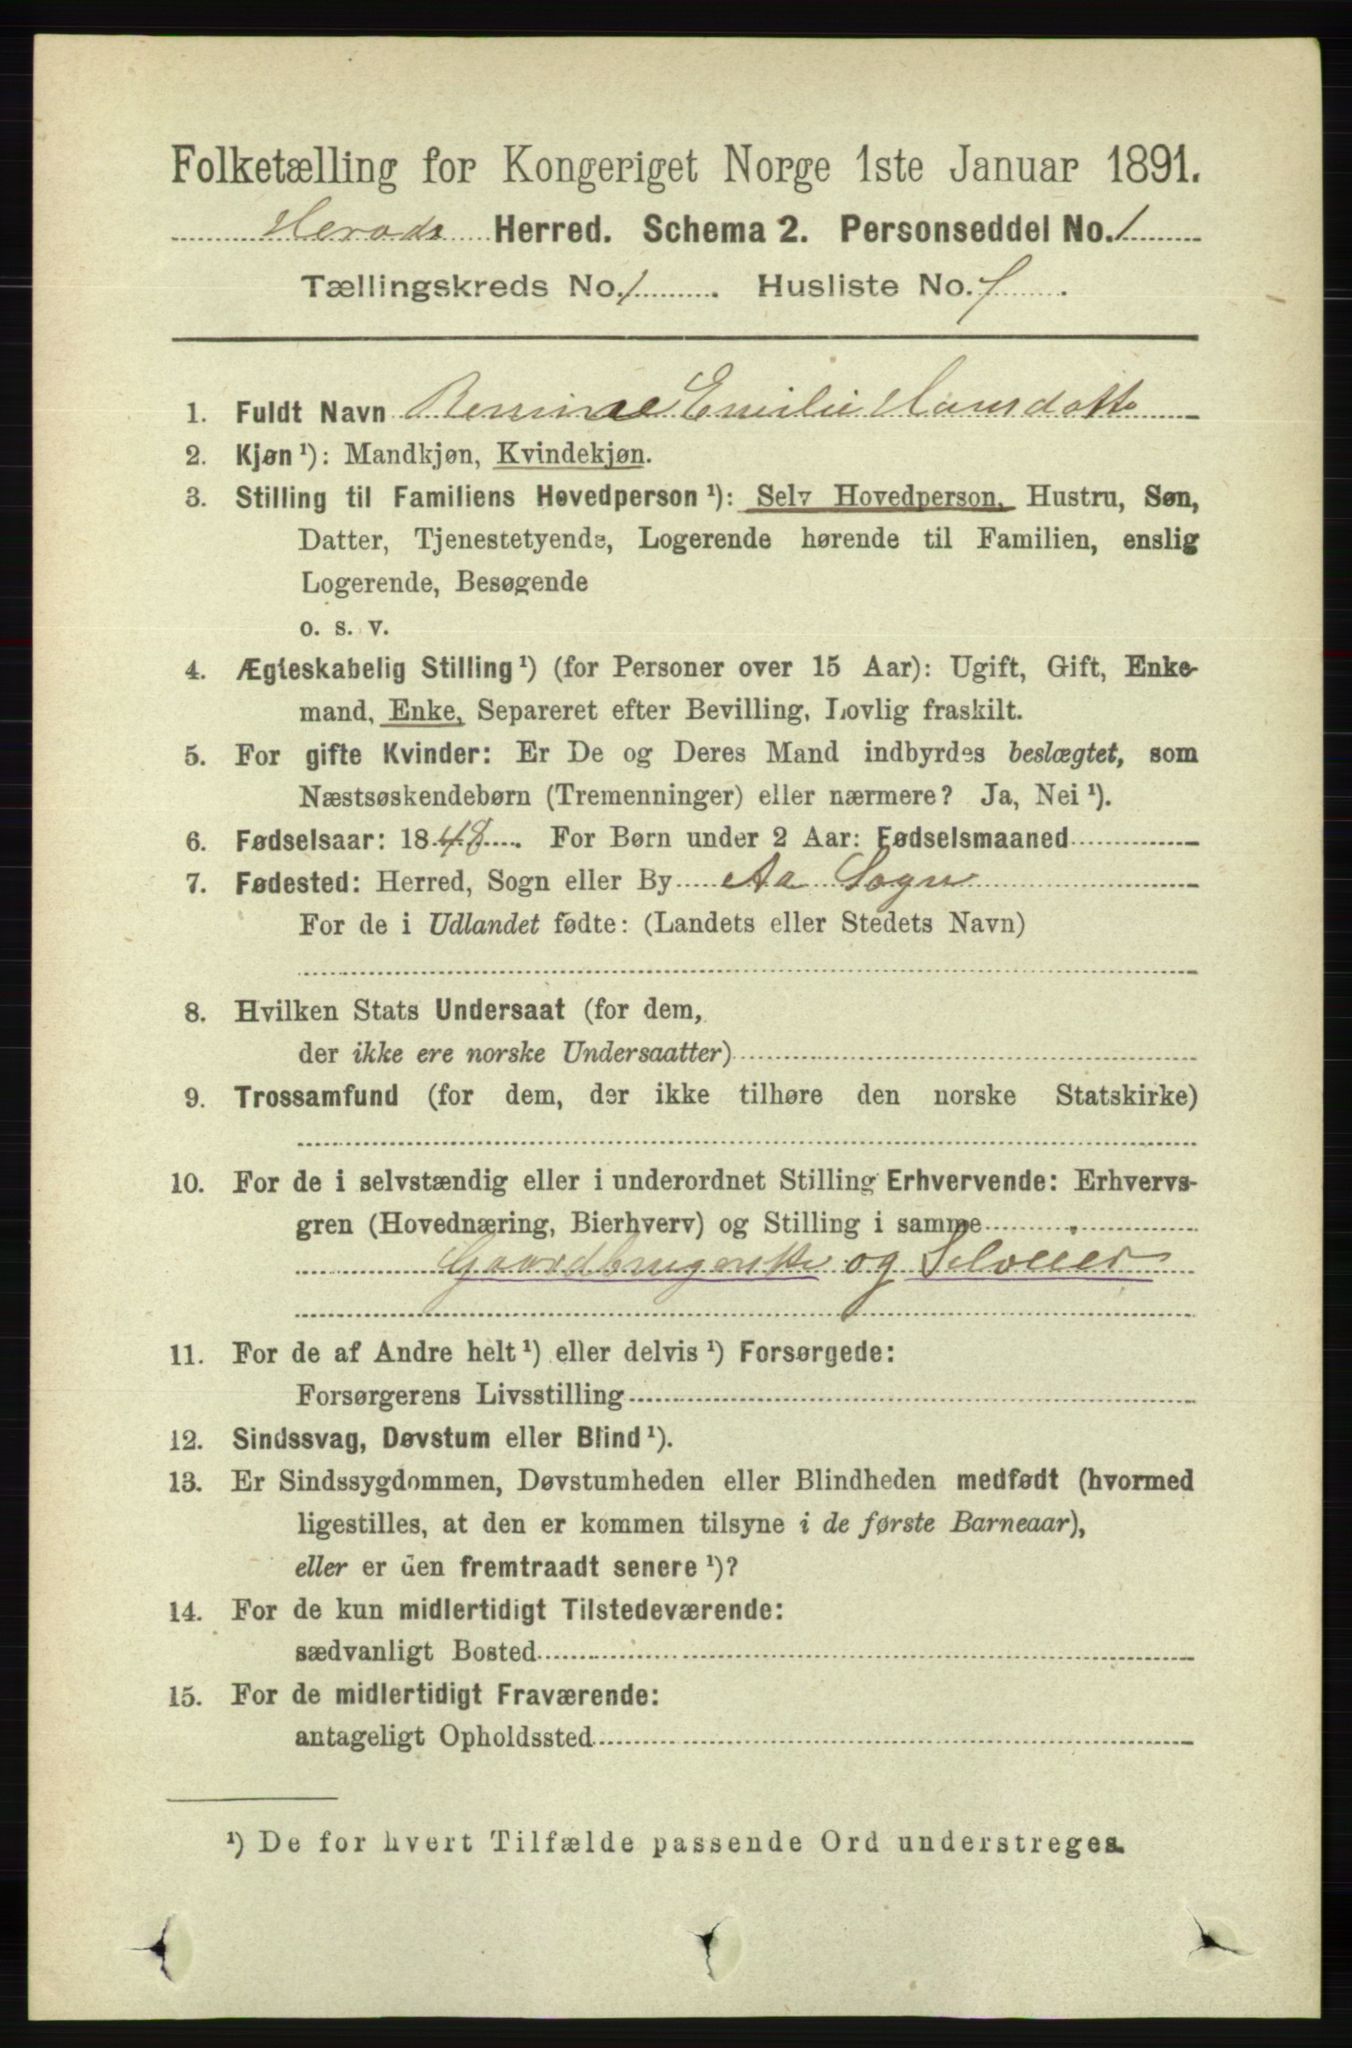 Folketælling for Kongeriget Norge 1ste Januar 1891.
Herads Herred. Schema 2. Personseddel No. 1
Tællingskreds No. 1. Husliste No. 1.
1. Fuldt Navn Emilie Hansdatte
2. Kjøn ¹): Mandkjøn, Kvindekjøn.
3. Stilling til Familiens Hovedperson ¹): Selv Hovedperson, Hustru, Søn,
Datter, Tjenestetyende, Logerende hørende til Familien, enslig
Logerende, Besøgende
o. s. v.
4. Ægteskabelig Stilling ¹) (for Personer over 15 Aar): Ugift, Gift, Enke-
mand, Enke, Separeret efter Bevilling, Lovlig fraskilt.
5. For gifte Kvinder: Er De og Deres Mand indbyrdes beslægtet, som
Næstsøskendebørn (Tremenninger) eller nærmere? Ja, Nei ¹).
6. Fødselsaar: 1848. For Børn under 2 Aar: Fødselsmaaned
7. Fødested: Herred, Sogn eller By Aa Sogn
For de i Udlandet fødte: (Landets eller Stedets Navn)
8. Hvilken Stats Undersaat (for dem,
der ikke ere norske Undersaatter)
9. Trossamfund (for dem, der ikke tilhøre den norske Statskirke)
10. For de i selvstændig eller i underordnet Stilling Erhvervende: Erhvervs-
gren (Hovednæring, Bierhverv) og Stilling i samme
Gaardbrugerske og Selveier
11. For de af Andre helt ¹) eller delvis ¹) Forsørgede:
Forsørgerens Livsstilling
12. Sindssvag, Døvstum eller Blind ¹).
13. Er Sindssygdommen, Døvstumheden eller Blindheden medfødt (hvormed
ligestilles, at den er kommen tilsyne i de første Barneaar),
eller er den fremtraadt senere ¹)?
14. For de kun midlertidigt Tilstedeværende:
sædvanligt Bosted
15. For de midlertidigt Fraværende:
antageligt Opholdssted
¹) De for hvert Tilfælde passende Ord understreges.